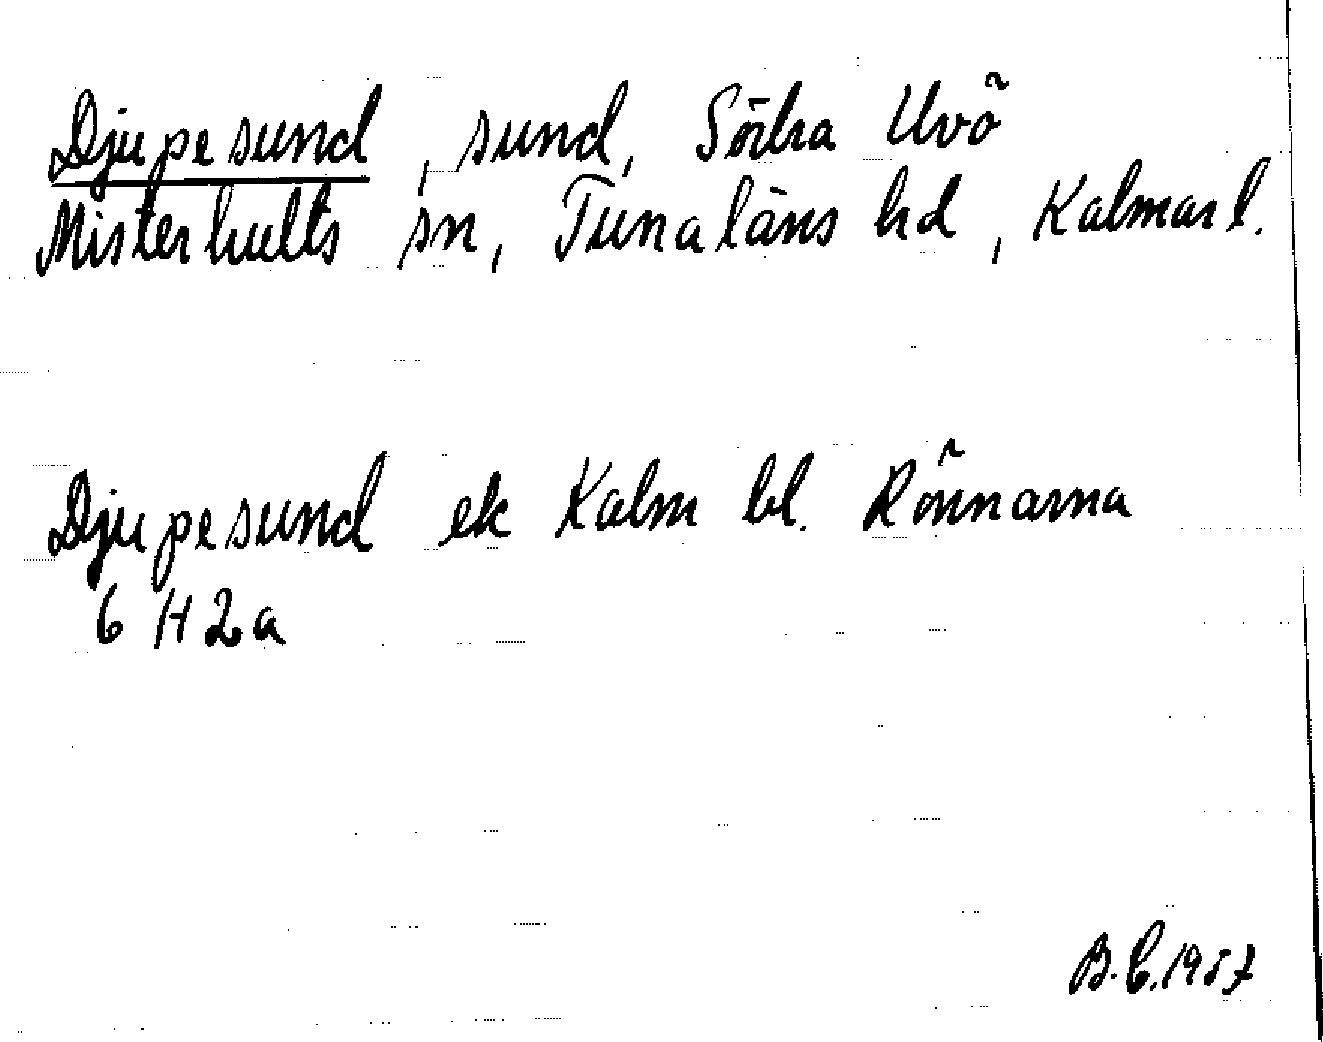 Djupesund, sund, Södra Uvö
Misterhults sn, Tunaläns hd, Kalmar l.
Djupesund ek Kalm bl. Rönnarna
6 H 2 a
B.C. 1957